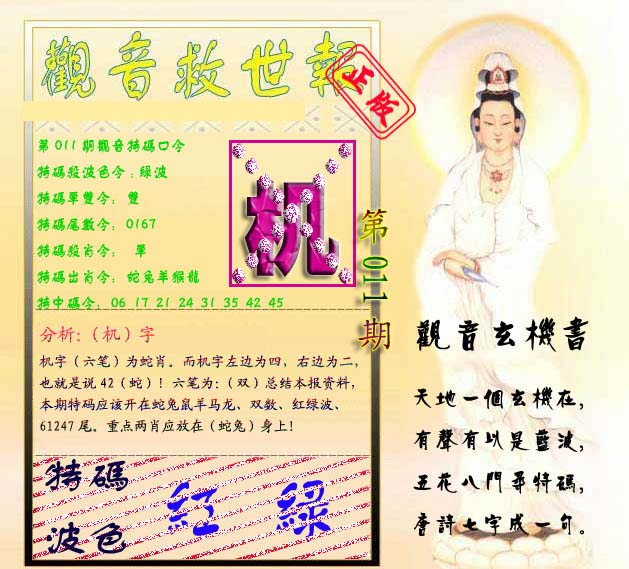 觀音救世報
正版
第011期觀音特碼口令
特碼殺波色令：綠波
特碼單雙令：雙
特碼尾數令：0167
特碼殺肖令：單
特碼出肖令：蛇兔羊猴龍
特中碼令：06 17 21 24 31 35 42 45
机
第011期
分析:（机）字
机字（六笔）为蛇肖。而机字左边为四，右边为二，
也就是说42（蛇）！六笔为:（双）总结本报资料，
本期特码应该开在蛇兔鼠羊马龙、双数、红绿波、
61247尾。重点两肖应放在（蛇兔）身上！
特碼
波色
紅 綠
觀音玄機書
天地一個玄機在，
有聲有以是藍波，
五花八門尋特碼，
唐詩七字成一句。